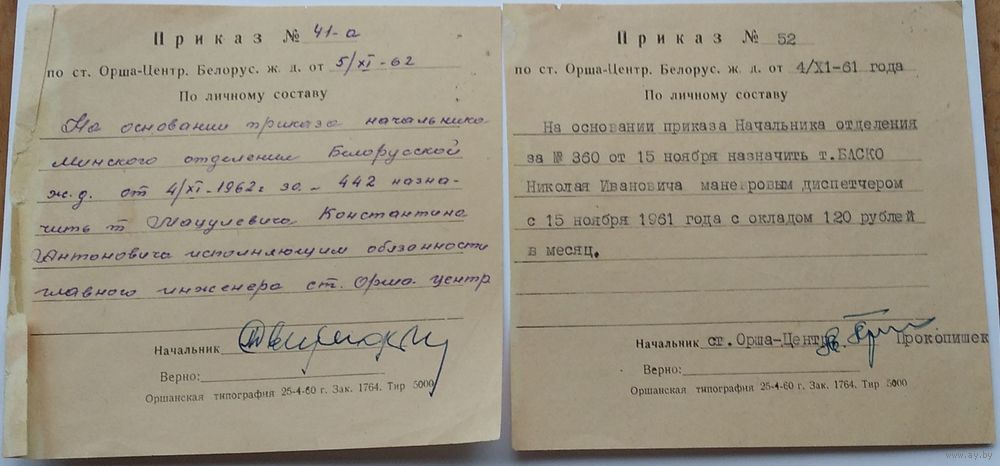 Приказ № 41-а
по ст. Орша-Центр. Белорус. ж. д. от 5/XI-62
По личному составу
На основании приказа начальника
Минского отделения Белорусской
ж.д. от 4/XI-1962г за - 442 назна-
чить т Мацулевича Константина
Антоновича исполняющим обязанности
главного инженера ст. Орша-центр
Начальник
Верно:
Оршанская типография 25-4-60 г. Зак. 1764. Тир 5000
Приказ № 52
по ст. Орша-Центр. Белорус. ж. д. от 4/XI-61 года
По личному составу
На основании приказа Начальника отделения
за № 360 от 15 ноября назначить т.БАСКО
Николая Ивановича маневровым диспетчером
с 15 ноября 1961 года с окладом 120 рублей
в месяц.
Начальник ст.Орша-Центр Прокопишек
Верно:
Оршанская типография 25-4-60 г. Зак. 1764. Тир 5000
www.ay.by